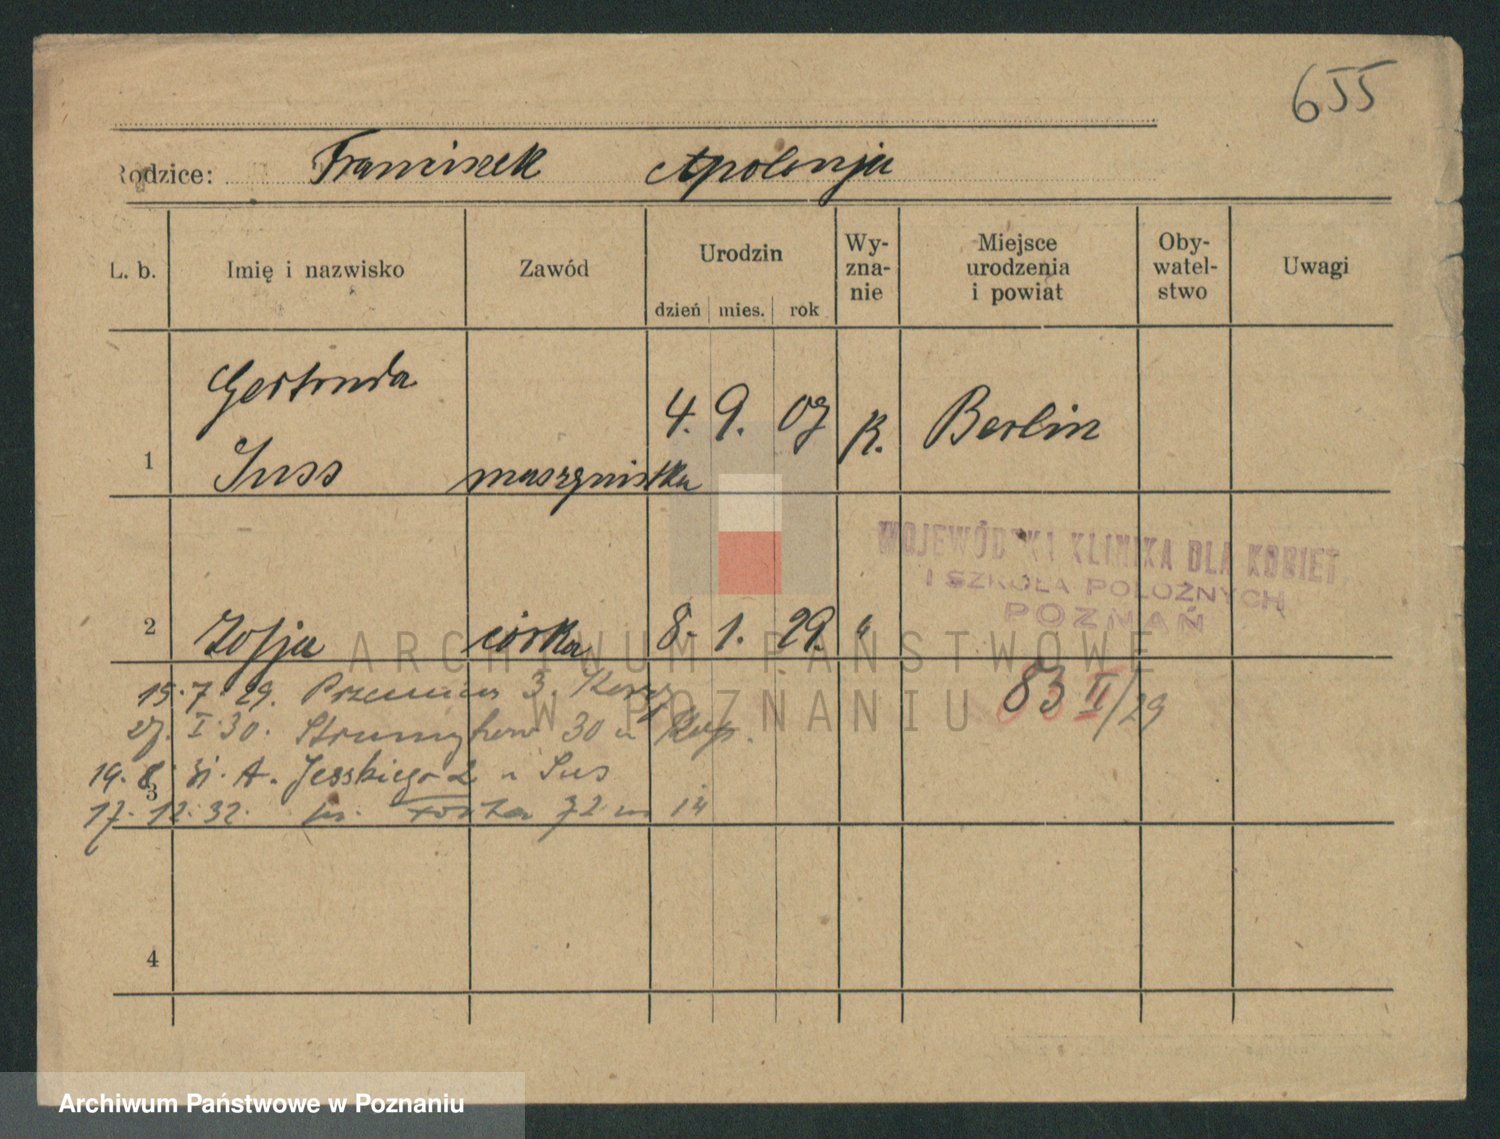 655
Rodzice: Franciszek Apolonja
L. b. Imię i nazwisko Zawód Urodzin dzień mies. rok Wy-zna-nie Miejsce urodzenia i powiat Oby-watel-stwo Uwagi
Gertruda
4. 9. 07 K. Berlin
1 Suss maszynistka
WOJEWÓDZKA KLINIKA DLA KOBIET
I SZKOŁA POŁOŻNYCH
POZNAŃ
2 Zofja córka 8. 1. 29. "
ARCHIWUM PAŃSTWOWE
W POZNANIU
83 II/29
15. 7. 29. 3.
27. I 30. 30 u
19. 8. 31. A. 2 u Sus
3
17. 12. 32. 72 m 14
4
Archiwum Państwowe w Poznaniu